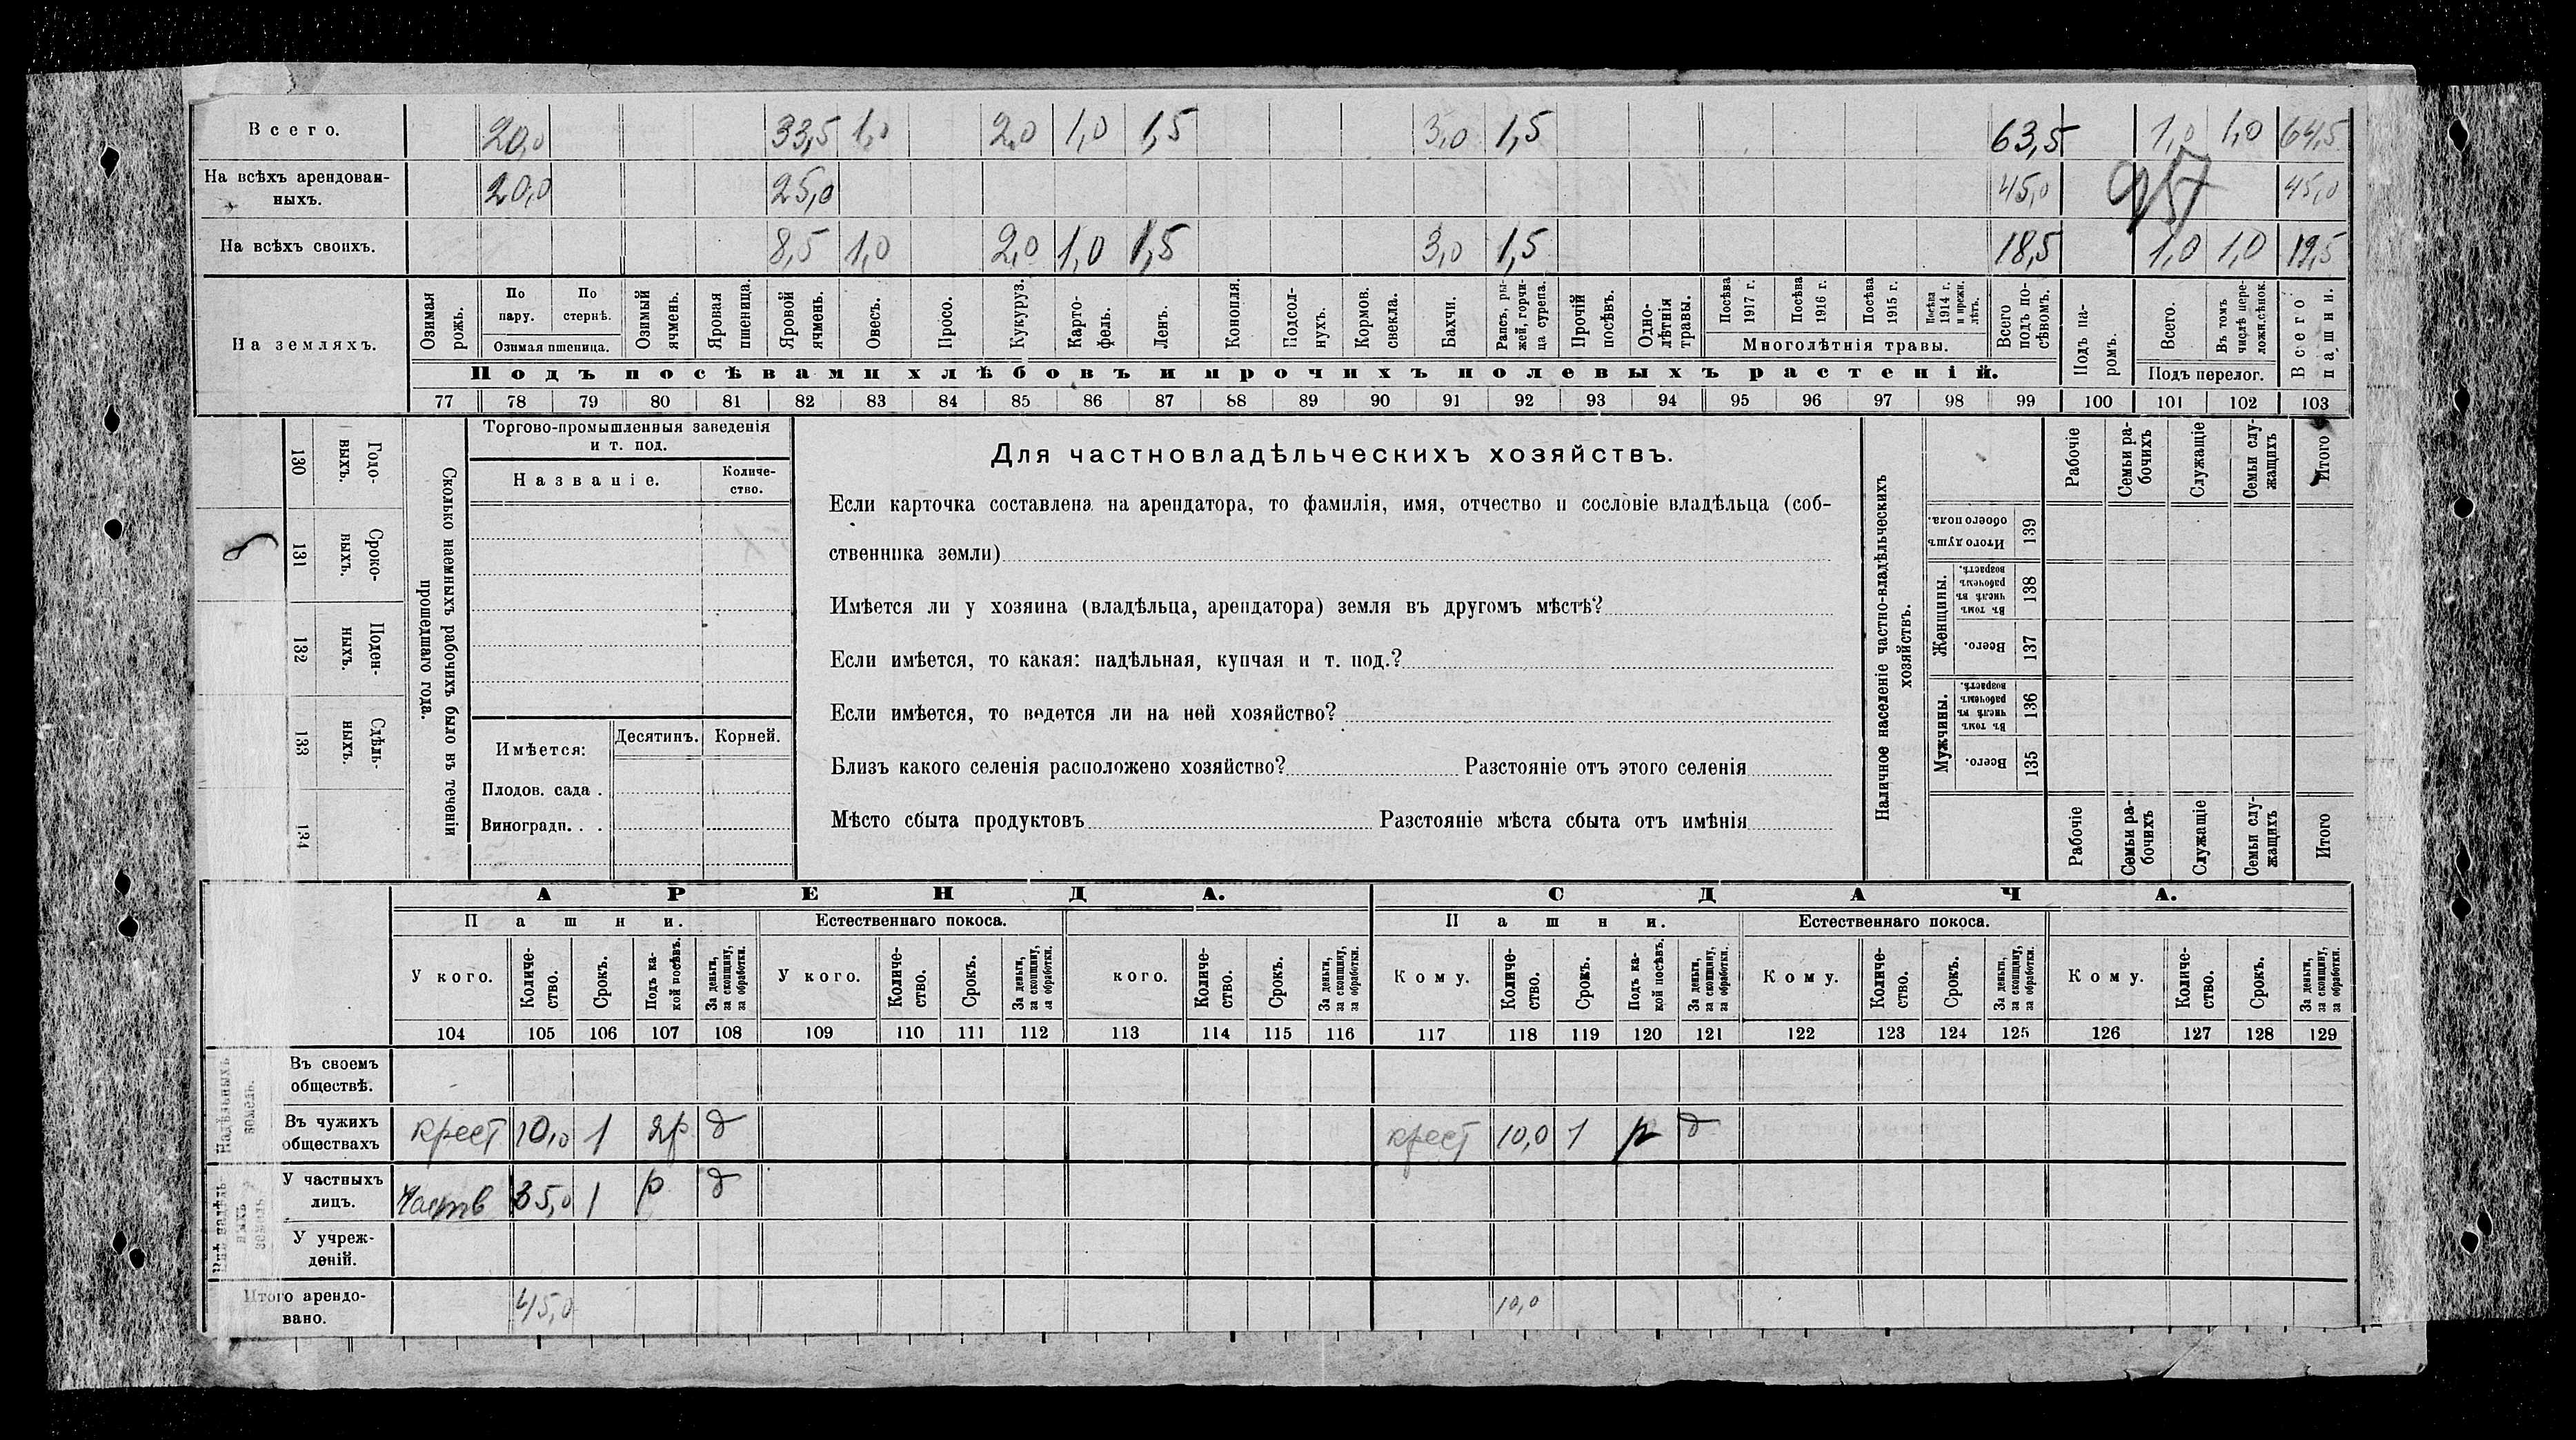 Всего. 20,0 33,5 1,0 2,0 1,0 1,5 3,0 1,5 63,5 1,0 1,0 64,5
На всѣхъ арендован-
ныхъ. 20,0 25,0 45,0 45,0
957
На всѣхъ своихъ. 8,5 1,0 2,0 1,0 1,5 3,0 1,5 18,5 1,0 1,0 19,5
На земляхъ.
Озимая рожь.
По пару.
По стернѣ.
Озимая пшеница.
Озимый ячмень.
Яровая пшеница.
Яровой ячмень.
Овесъ.
Просо.
Кукуруз.
Карто-
фель.
Ленъ.
Конопля.
Подсол-
нухъ.
Кормов. свекла.
Бахчи.
Рапсъ, ры-
жей, горчи-
ца сурепа.
Прочій посѣвъ.
Одно-
лѣтнія травы.
Посѣва 1917 г.
Посѣва 1916 г.
Посѣва 1915 г.
Посѣва 1914 г. и прежн. лѣтъ.
Многолѣтнія травы.
Всего подъ по-
сѣвомъ.
Подъ па-
ромъ.
Всего.
Въ томъ числѣ пере-
ложн.сѣнок.
Подъ перелог.
Всего пашни.
Подъ посѣвами хлѣбовъ и прочихъ полевыхъ растеній.
77 78 79 80 81 82 83 84 85 86 87 88 89 90 91 92 93 94 95 96 97 98 99 100 101 102 103
130 Годо-
выхъ.
131 Сроко-
выхъ.
132 Поден-
ныхъ.
133 Сдѣль-
ныхъ.
134
Сколько наемныхъ рабочихъ было въ теченіи
прошедшаго года.
Торгово-промышленныя заведенія
и т. под.
Названіе.
Количе-
ство.
Имѣется: Десятинъ. Корней.
Плодов. сада .
Виноградн. . .
Для частновладѣльческихъ хозяйствъ.
Если карточка составлена на арендатора, то фамилія, имя, отчество и сословіе владѣльца (соб-
ственника земли)
Имѣется ли у хозяина (владѣльца, арендатора) земля въ другомъ мѣстѣ?
Если имѣется, то какая: надѣльная, купчая и т. под.?
Если имѣется, то ведется ли на ней хозяйство?
Близъ какого селенія расположено хозяйство? Разстояніе отъ этого селенія
Мѣсто сбыта продуктовъ Разстояніе мѣста сбыта отъ имѣнія
Наличное населеніе частно-владѣльческихъ
хозяйствъ.
Рабочіе
Семьи ра-
бочихъ
Служащіе
Семьи слу-
жащихъ
Итого
Итого душъ обоего пола. 139
Женщины.
Въ томъ числѣ въ рабочемъ возрастѣ. 138
Всего. 137
Мужчины.
Въ томъ числѣ въ рабочемъ возрастѣ. 136
Всего. 135
Рабочіе
Семьи ра-
бочихъ
Служащіе
Семьи слу-
жащихъ
Итого
АРЕНДА. СДАЧА.
Пашни. Естественнаго покоса. Пашни. Естественнаго покоса.
У кого. Количе-
ство. Срокъ. Подъ ка-
кой посѣвъ. За деньги, за скопщину, за обработки.
У кого. Количе-
ство. Срокъ. За деньги, за скопщину, за обработки.
кого. Количе-
ство. Срокъ. За деньги, за скопщину, за обработки.
Кому. Количе-
ство. Срокъ. Подъ ка-
кой посѣвъ. За деньги, за скопщину, за обработки.
Кому. Количе-
ство. Срокъ. За деньги, за скопщину, за обработки.
Кому. Количе-
ство. Срокъ. За деньги, за скопщину, за обработки.
104 105 106 107 108 109 110 111 112 113 114 115 116 117 118 119 120 121 122 123 124 125 126 127 128 129
Надѣльныхъ земель.
Въ своемъ
обществѣ.
Въ чужихъ
обществахъ крест 10,0 1 д крест 10,0 1 р д
Внѣ надѣль
ныхъ
земель
У частныхъ
лицъ. Частв 35,0 1 р д
У учреж-
деній.
Итого арендо-
вано. 45,0 10,0